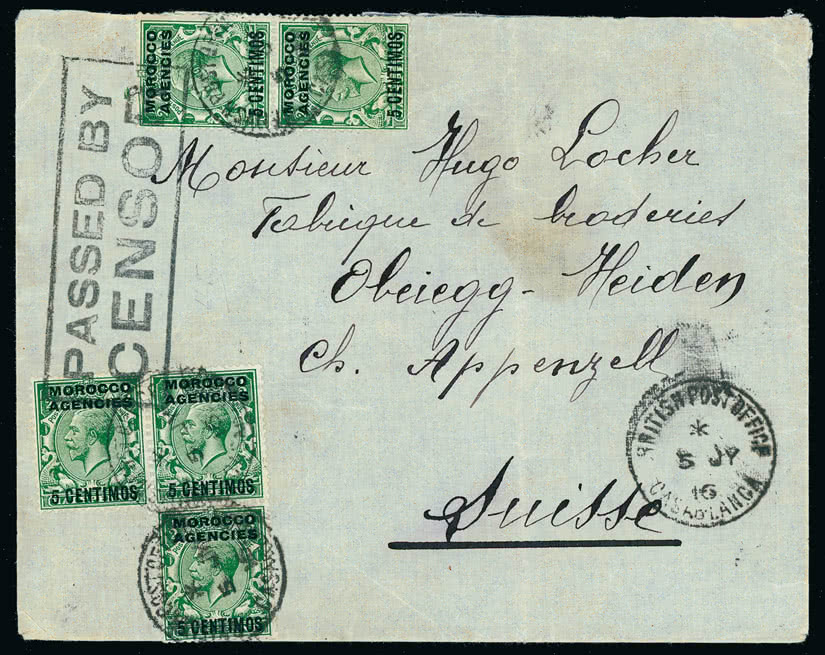 MOROCCO
AGENCIES
5 CENTIMOS
MOROCCO
AGENCIES
5 CENTIMOS
PASSED BY
CENSOR
Monsieur Hugo Locher
Fabrique de broderies
Obeiegg - Heiden
Ch. Appenzell
Suisse
BRITISH POST OFFICE
*
5 JY
16
CASABLANCA
MOROCCO
AGENCIES
5 CENTIMOS
MOROCCO
AGENCIES
5 CENTIMOS
MOROCCO
AGENCIES
5 CENTIMOS